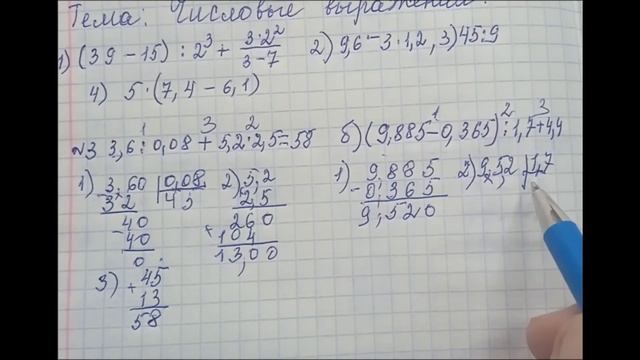 Тема: Числовые выражения.
1) (39 − 15) : 2³ + 3·2²/3−7 2) 9,6 − 3·1,2, 3) 45:9
4) 5·(7,4 − 6,1)
1 3 2
№3 3,6 : 0,08 + 5,2·2,5 = 58
1 2 3
б) (9,885 − 0,365) : 1,7 + 4,4
1) 3,60 | 0,08
32 | 45
−40
40
0
2) 5,2
2,5
260
+ 104
13,00
3) + 45
13
58
1) 9,885
− 0,365
9,520
2) 9,52 | 1,7